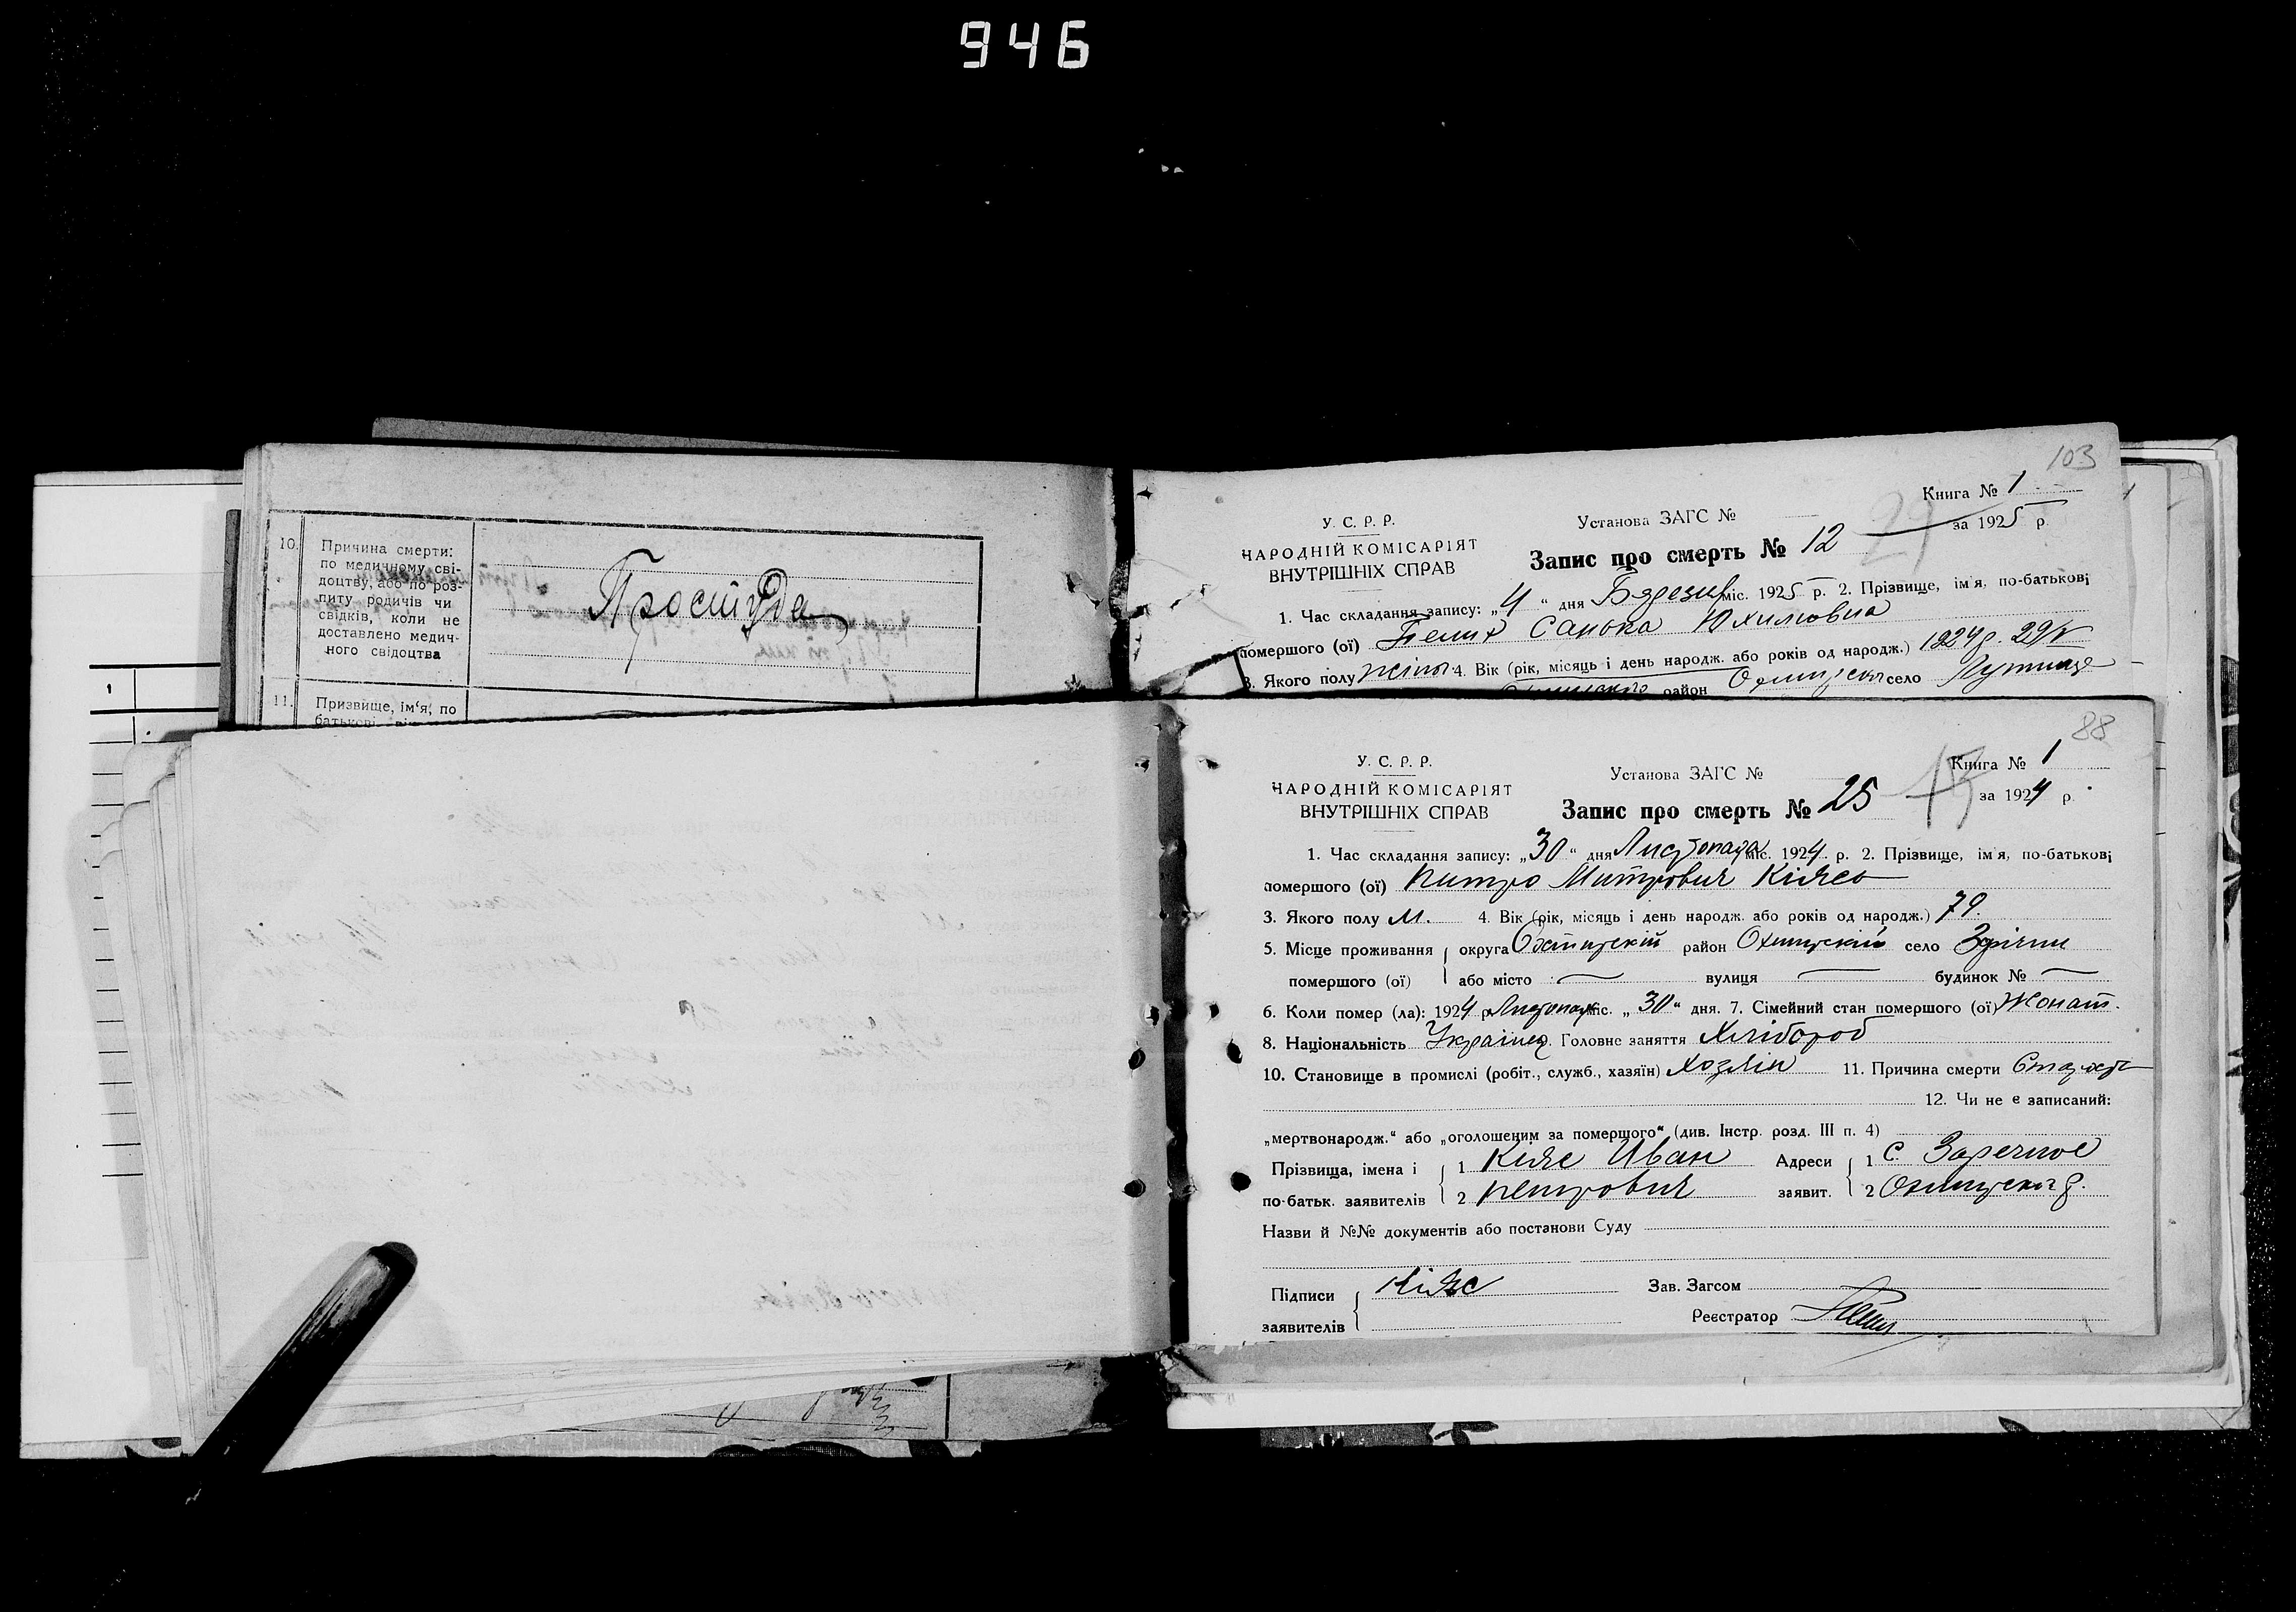 946
10. Причина смерти:
по медичному сві-
доцтву, або по роз-
питу родичів чи
свідків, коли не
доставлено медич-
ного свідоцтва
Простуда
11. Призвище, ім'я, по
батькові
1
103
Книга № 1
У. С. Р. Р.
Установа ЗАГС №
за 1925 р.
29
НАРОДНІЙ КОМІСАРІЯТ
ВНУТРІШНІХ СПРАВ
Запис про смерть № 12
1. Час складання запису: „4“ дня міс. 1925 р. 2. Прізвище, ім'я, по-батькові
помершого (ої) Санька Юхимовна
3. Якого полу 4. Вік (рік, місяць і день народж. або років од народж.) 1924 р. 29/V
район село
88
У. С. Р. Р.
Установа ЗАГС №
Книга № 1
НАРОДНІЙ КОМІСАРІЯТ
ВНУТРІШНІХ СПРАВ
Запис про смерть № 25
за 1924 р.
1. Час складання запису: „30“ дня Листопада міс. 1924 р. 2. Прізвище, ім'я, по-батькові
помершого (ої) Митрович
3. Якого полу М. 4. Вік (рік, місяць і день народж. або років од народж.) 79.
5. Місце проживання округа район село
помершого (ої) або місто — вулиця — будинок № —
6. Коли помер (ла): 1924 р. Листопада міс. „30“ дня. 7. Сімейний стан помершого (ої) Жонат.
8. Національність Українец. Головне заняття Хлібороб
10. Становище в промислі (робіт., служб., хазяїн) Хозяін 11. Причина смерти
12. Чи не є записаний:
„мертвонародж.“ або „оголошеним за помершого“ (див. Інстр. розд. III п. 4)
Прізвища, імена і 1 Кіяс Иван Адреси 1 С. Заречное
по-батьк. заявителів 2 Петрович заявит. 2
Назви й №№ документів або постанови Суду
Підписи Кіяс Зав. Загсом
заявителів Реєстратор